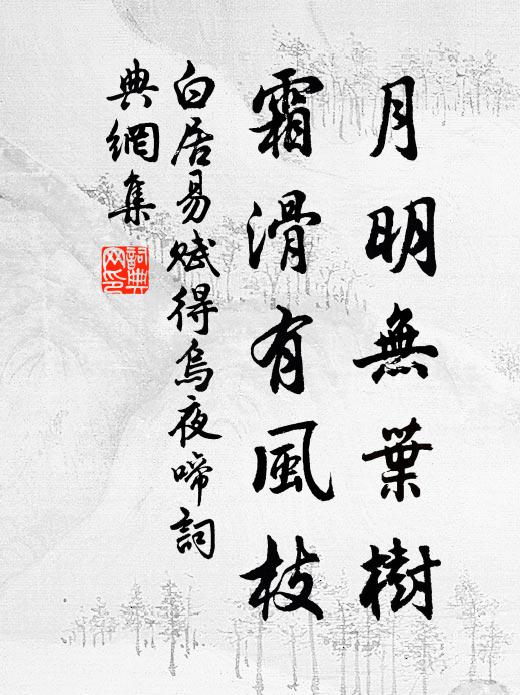 月明無葉樹
霜滑有風枝
白居易賦得烏夜啼詞
典網集
詞典
网印